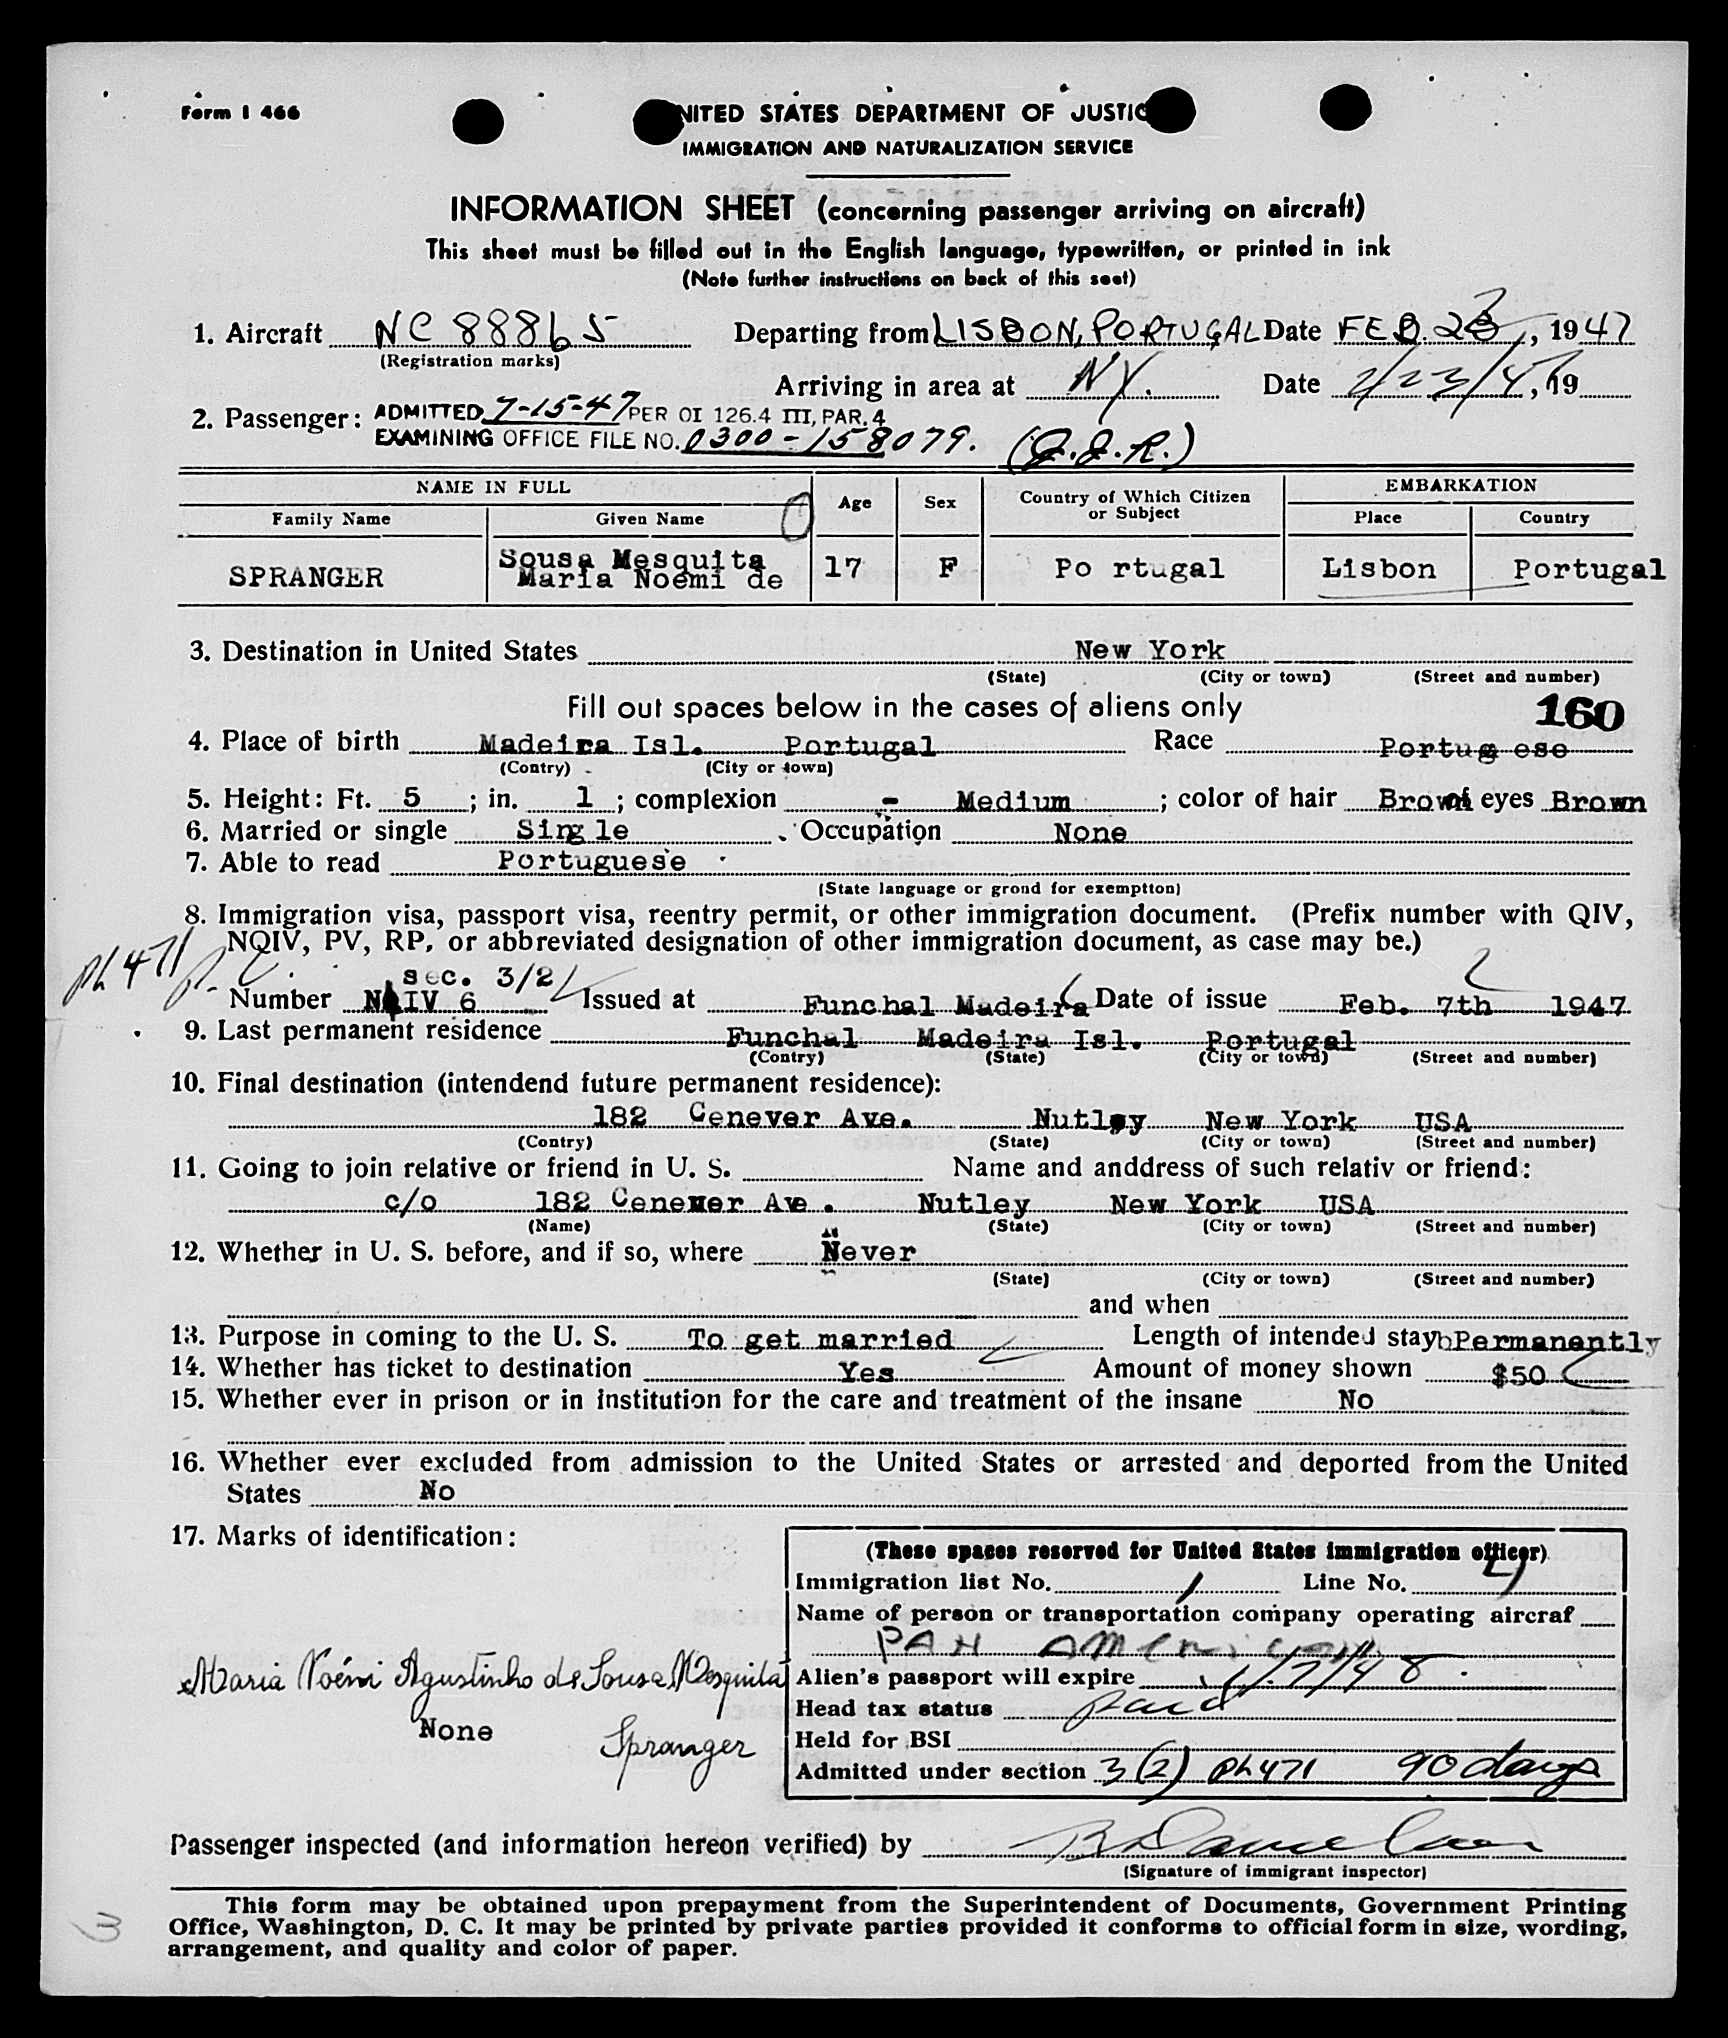 Form I 466
UNITED STATES DEPARTMENT OF JUSTIC
IMMIGRATION AND NATURALIZATION SERVICE
INFORMATION SHEET (concerning passenger arriving on aircraft)
This sheet must be filled out in the English language, typewritten, or printed in ink
(Note further instructions on back of this seet)
1. Aircraft NC 88865 Departing from LISBON, PORTUGAL Date FEB. 23, 1947
(Registration marks)
Arriving in area at NY. Date 2/23/47, 19
2. Passenger: ADMITTED 7-15-47 PER OI 126.4 III, PAR. 4
EXAMINING OFFICE FILE NO. 0300-158079. (J.J.R.)
NAME IN FULL Age Sex Country of Which Citizen or Subject EMBARKATION
Family Name Given Name Place Country
SPRANGER Sousa Mesquita Maria Noemi de 17 F Po rtugal Lisbon Portugal
3. Destination in United States New York
(State) (City or town) (Street and number)
Fill out spaces below in the cases of aliens only 160
4. Place of birth Madeira Isl. Portugal Race Portug ese
(Contry) (City or town)
5. Height: Ft. 5 ; in. 1 ; complexion - Medium ; color of hair Brown of eyes Brown
6. Married or single Sing le Occupation None
7. Able to read Portuguese
(State language or grond for exemptton)
8. Immigration visa, passport visa, reentry permit, or other immigration document. (Prefix number with QIV,
NQIV, PV, RP, or abbreviated designation of other immigration document, as case may be.)
Ph 471 sec. 3/2
Number NQIV 6 Issued at Funchal Madeira Date of issue Feb. 7th 1947
9. Last permanent residence Funchal Madeira Isl. Portugal
(Contry) (State) (City or town) (Street and number)
10. Final destination (intendend future permanent residence):
182 Cenever Ave. Nutley New York USA
(Contry) (State) (City or town) (Street and number)
11. Going to join relative or friend in U. S. Name and anddress of such relativ or friend:
c/o 182 Cenever Ave . Nutley New York USA
(Name) (State) (City or town) (Street and number)
12. Whether in U. S. before, and if so, where Never
(State) (City or town) (Street and number)
and when
13. Purpose in coming to the U. S. To get married Length of intended stay Permanently
14. Whether has ticket to destination Yes Amount of money shown $50
15. Whether ever in prison or in institution for the care and treatment of the insane No
16. Whether ever excluded from admission to the United States or arrested and deported from the United
States No
17. Marks of identification:
Maria Noémi Agustinho de Sousa Mesquita
None Spranger
(These spaces reserved for United States immigration officer)
Immigration list No. 1 Line No. 4
Name of person or transportation company operating aircraf
PAN American
Alien's passport will expire 1/7/48.
Head tax status paid
Held for BSI
Admitted under section 3(2) Ph471 90 days
Passenger inspected (and information hereon verified) by
(Signature of immigrant inspector)
This form may be obtained upon prepayment from the Superintendent of Documents, Government Printing
Office, Washington, D. C. It may be printed by private parties provided it conforms to official form in size, wording,
arrangement, and quality and color of paper.
3